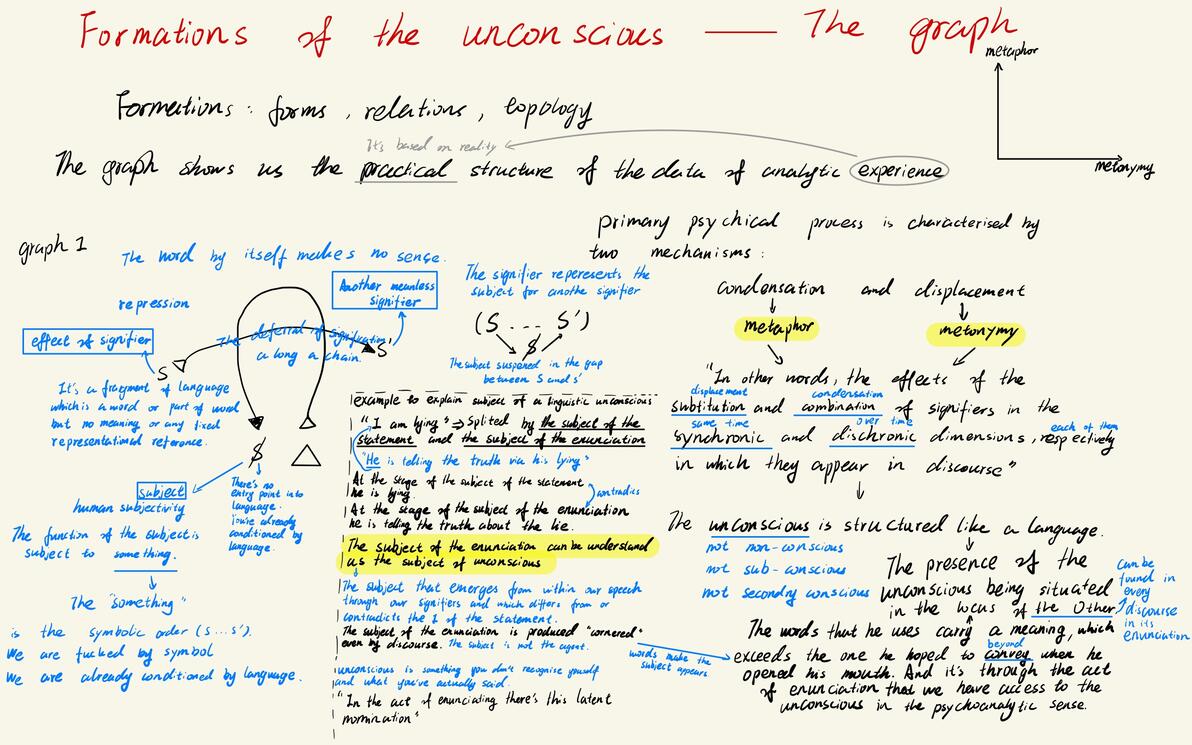 Formations of the unconscious — The graph
metaphor
metonymy
Formations : forms , relations , topology
It's based on reality
The graph shows us the practical structure of the data of analytic experience
graph 1
The word by itself makes no sense.
repression
Another meanless
signifier
effect of signifier
The deferral of signification
a long a chain.
S
S'
It's a fragment of language
which is a word or part of word
but no meaning or any fixed
representational reference.
$
△
subject
human subjectivity
There's no
entry point into
language.
You're already
conditioned by
language.
The function of the subject is
subject to something.
The "something"
is the symbolic order (s...s').
We are fucked by symbol
We are already conditioned by language.
The signifier repseresents the
subject for anothe signifier
(S ... S')
$
The subject suspened in the gap
between S and s'
example to explain subject of a linguistic unconscious
"I am lying" ⇒ splited by the subject of the
statement and the subject of the enunciation
"He is telling the truth via his lying"
At the stage of the subject of the statement
he is lying.
contradics
At the stage of the subject of the enunciation
he is telling the truth about the lie.
The subject of the enunciation can be understand
as the subject of unconscious
The subject that emerges from within our speech
through our signifiers and which differs from or
contradicts the I of the statement.
The subject of the enunciation is produced "cornered"
even by discourse. The subject is not the agent.
unconscious is something you don't recognise yourself
and what you've actually said.
"In the act of enunciating there's this latent
nomination"
primary psychical process is characterised by
two mechanisms :
condensation and displacement
metaphor metonymy
"In other words, the effects of the
displacement condensation
subtitution and combination of signifiers in the
same time over time each of them
synchronic and dischronic dimensions, respectively
in which they appear in discourse"
The unconscious is structured like a language.
not non-conscious
not sub-conscious
not secondry conscious
The presence of the
unconscious being situated
in the locus of the Other
can be
found in
every
discourse
in its
enunciation
The words that he uses carry a meaning, which
beyond
exceeds the one he hoped to convey when he
words make the
subject appears
opened his mouth. And it's through the act
of enunciation that we have access to the
unconscious in the psychoanalytic sense.